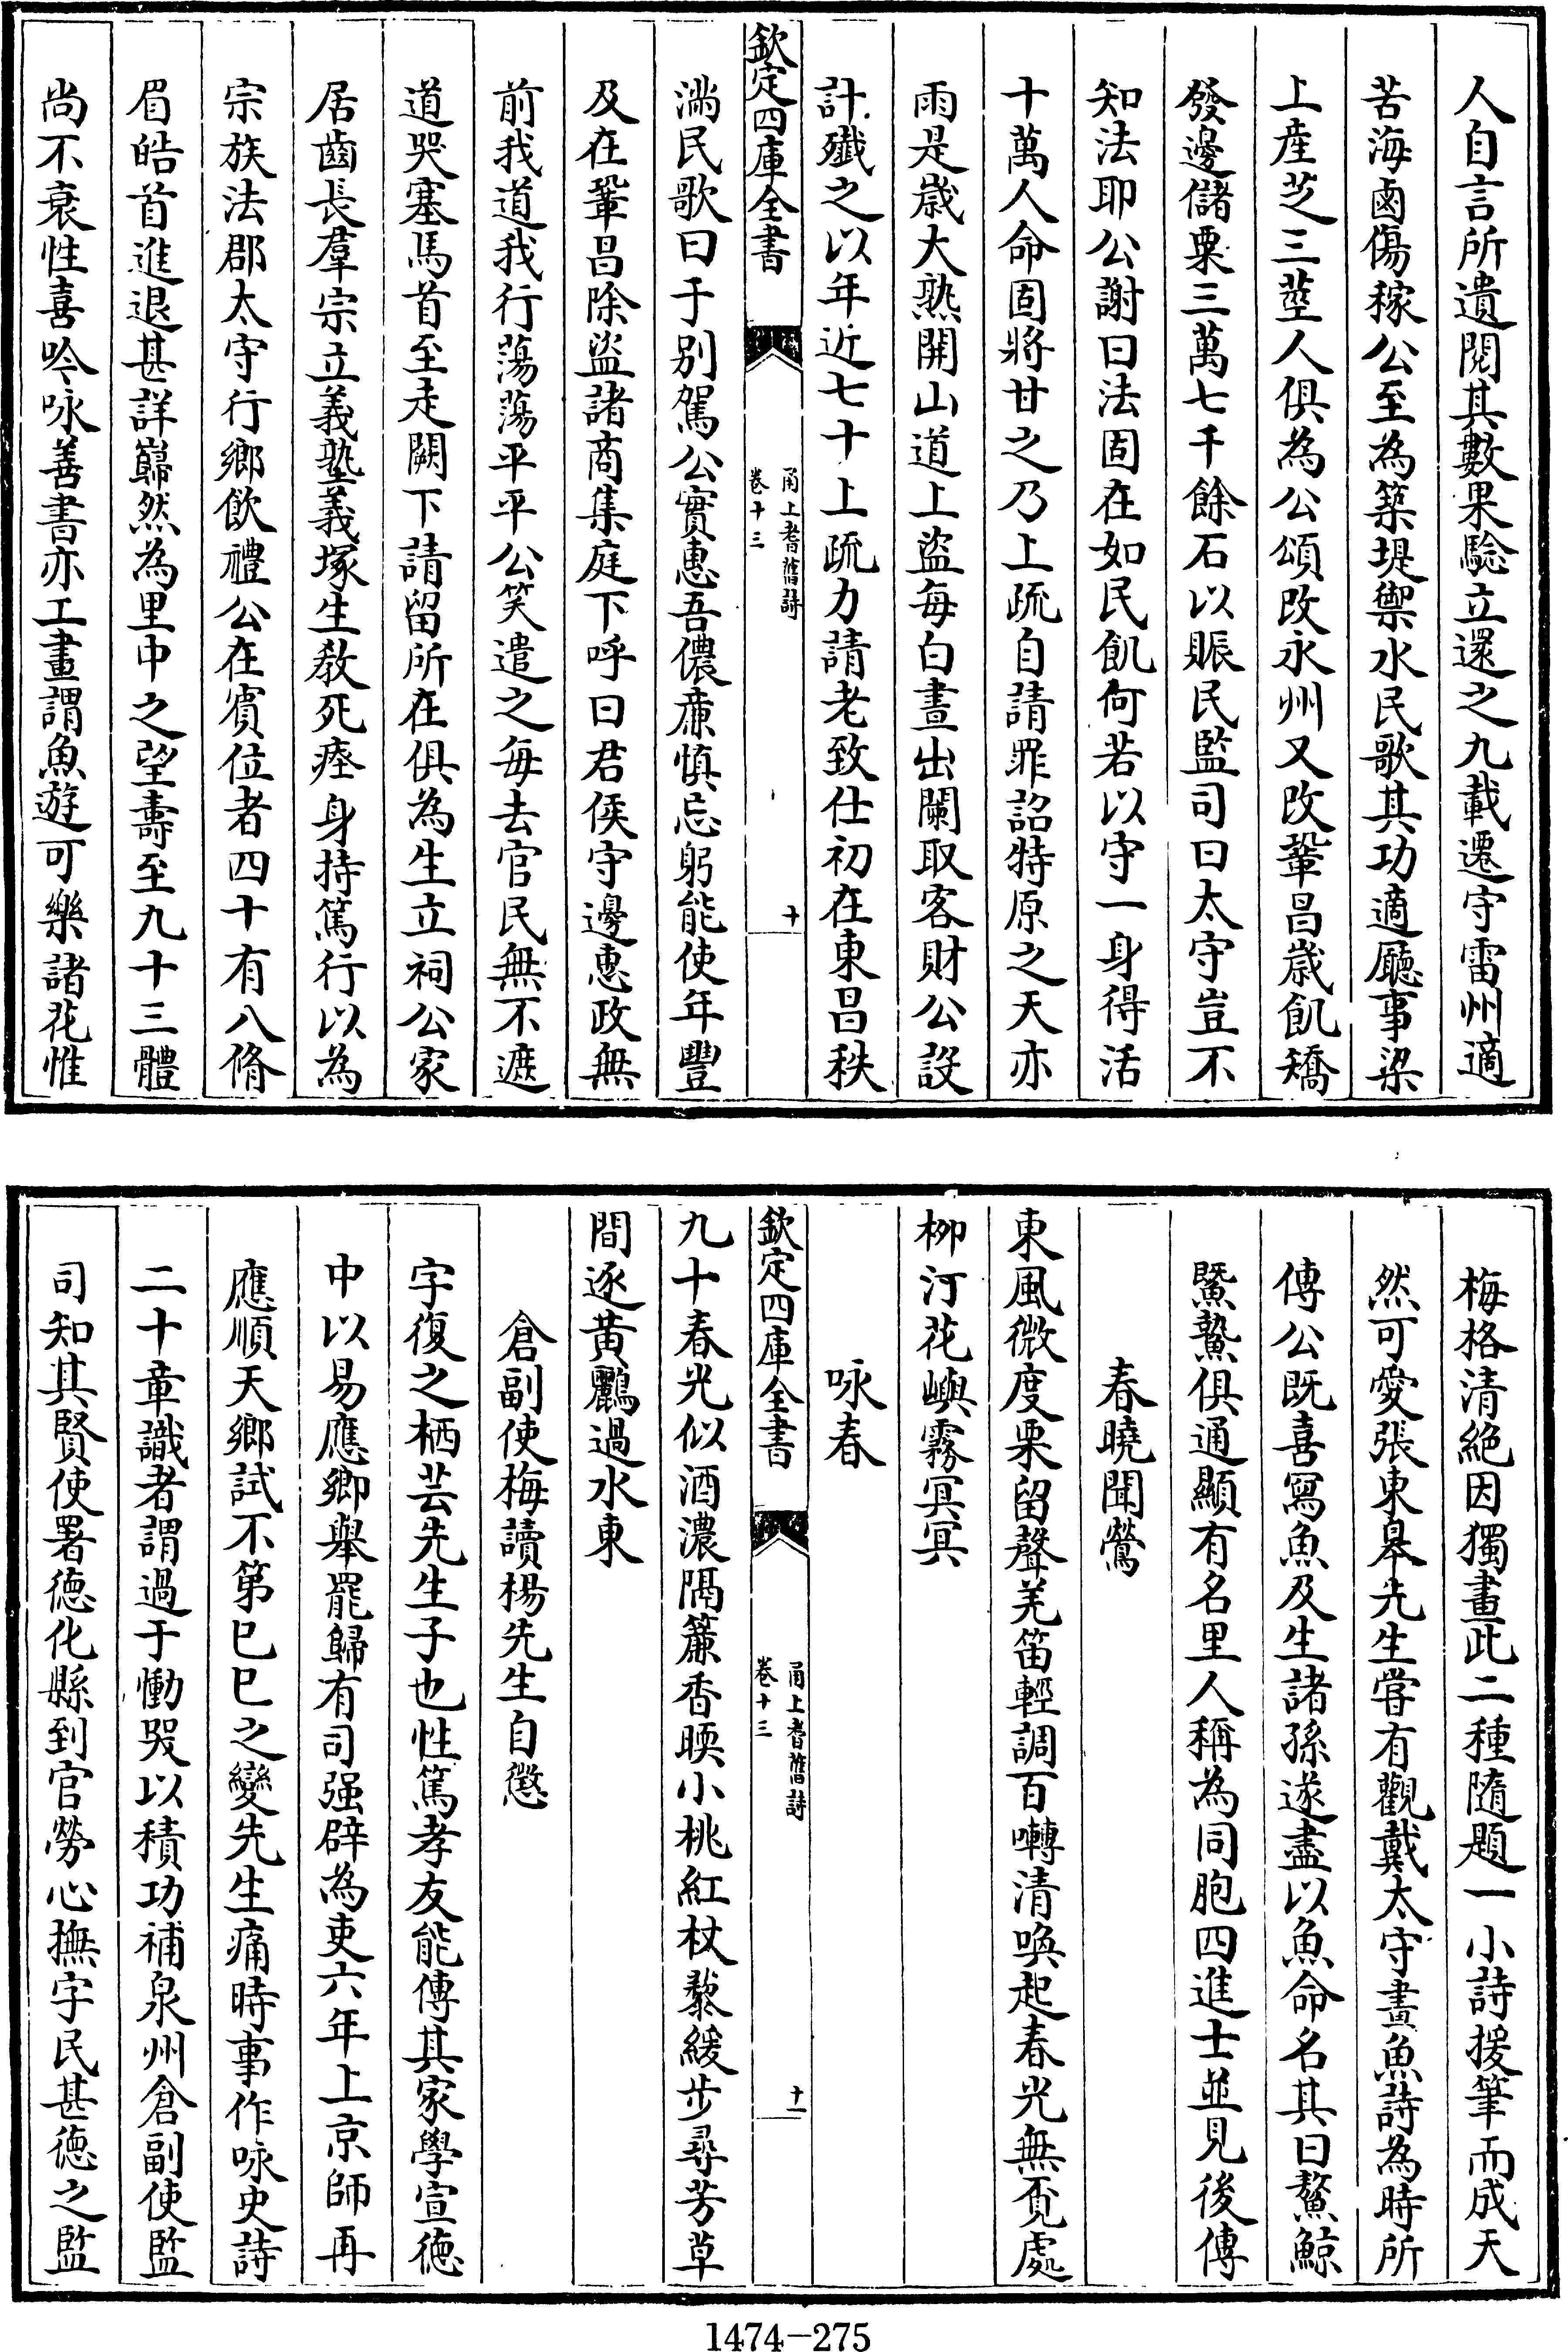 人自言所遺閱其數果驗立還之九載遷守雷州適
苦海鹵傷稼公至為築堤禦水民歌其功適廳事梁
上産芝三莖人俱為公頌改永州又改鞏昌歳飢矯
發邊儲粟三萬七千餘石以賑民監司曰太守豈不
知法耶公謝曰法固在如民飢何若以守一身得活
十萬人命固將甘之乃上疏自請罪詔特原之天亦
雨是歳大熟開山道上盜每白晝出闌取客財公設
計殲之以年近七十上疏力請老致仕初在東昌秩
欽定四庫全書
甬上耆舊詩
卷十三
十
滿民歌曰于別駕公實惠吾儂亷慎忘躬能使年豐
及在鞏昌除盜諸商集庭下呼曰君侯守邊惠政無
前我道我行蕩蕩平平公笑遣之每去官民無不遮
道哭塞馬首至走闕下請留所在俱為生立祠公家
居齒長羣宗立義塾義塚生敎死瘞身持篤行以為
宗族法郡太守行鄉飲禮公在賓位者四十有八脩
眉皓首進退甚詳巋然為里中之望壽至九十三體
尚不衰性喜吟咏善書亦工畫謂魚遊可樂諸花惟
梅格清絕因獨畫此二種隨題一小詩援筆而成天
然可愛張東臯先生嘗有觀戴太守畫魚詩為時所
傳公既喜寫魚及生諸孫遂盡以魚命名其曰鰲鯨
鱀鷙俱通顯有名里人稱為同胞四進士並見後傳
春曉聞鶯
東風微度栗留聲羌笛輕調百囀清喚起春光無覔處
栁汀花嶼霧冥冥
咏春
欽定四庫全書
甬上耆舊詩
卷十三
十一
九十春光似酒濃隔簾香暎小桃紅杖藜緩步尋芳草
間逐黃鸝過水東
倉副使梅讀楊先生自懲
字復之栖芸先生子也性篤孝友能傳其家學宣徳
中以易應鄉舉罷歸有司强辟為吏六年上京師再
應順天鄉試不第已巳之變先生痛時事作咏史詩
二十章識者謂過于慟哭以積功補泉州倉副使監
司知其賢使署徳化縣到官勞心撫字民甚徳之監
1474-275